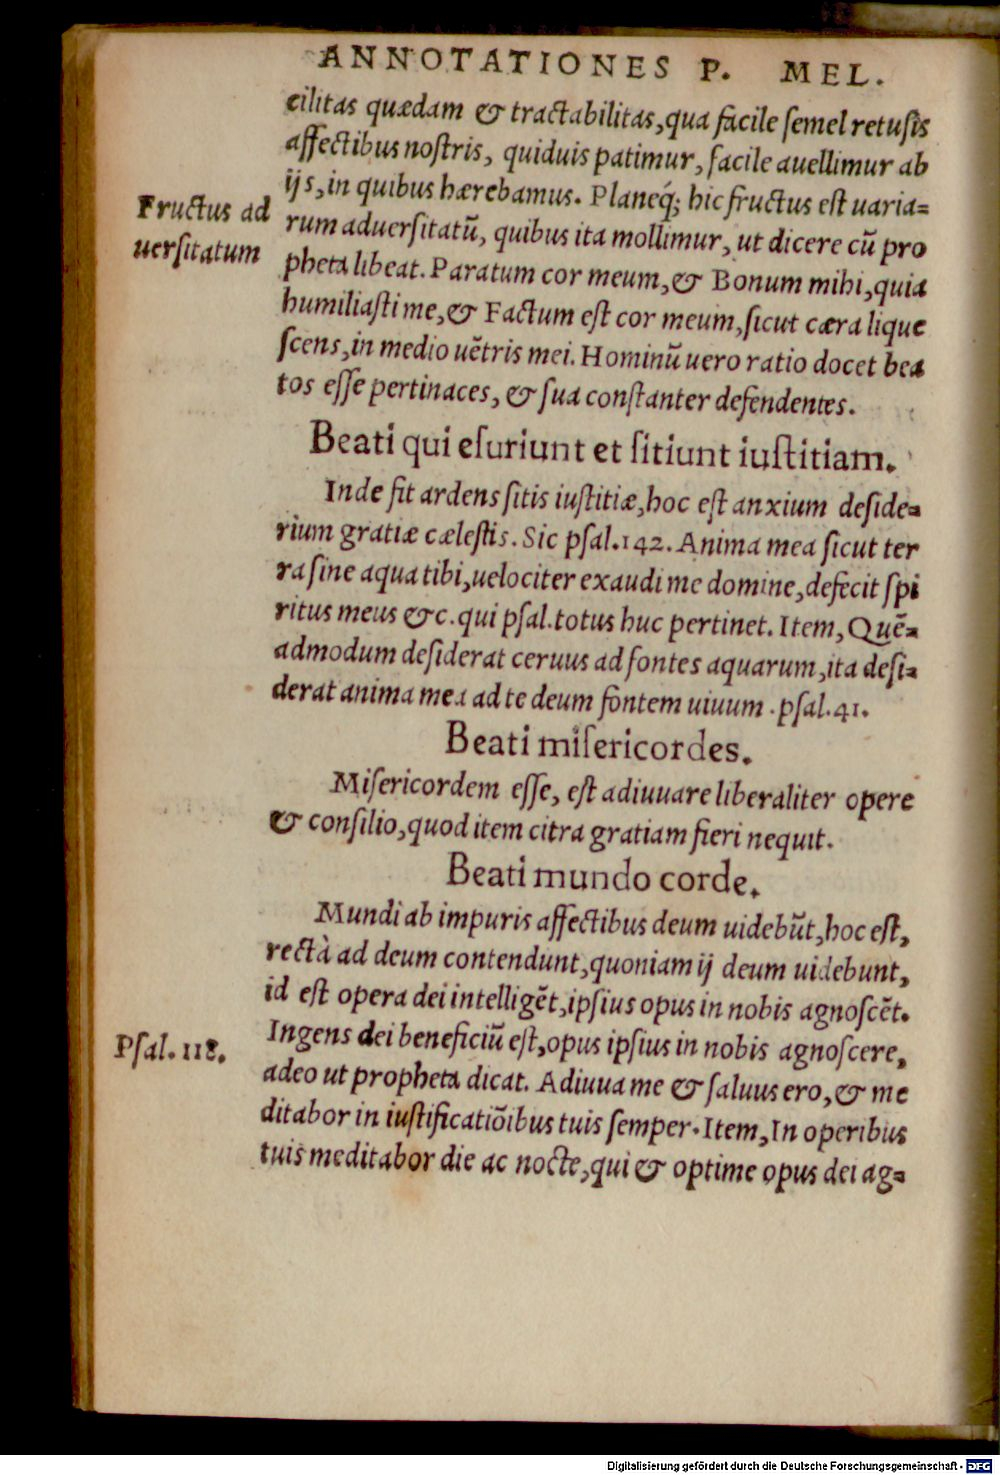 ANNOTATIONES P. MEL.
cilitas quædam & tractabilitas, qua facile ſemel retuſis
affectibus noſtris, quiduis patimur, facile auellimur ab
ijs, in quibus hærebamus. Planeq́; hic fructus eſt uaria=
Fructus ad
uerſitatum
rum aduerſitatũ, quibus ita mollimur, ut dicere cũ pro
pheta libeat. Paratum cor meum, & Bonum mihi, quia
humiliaſti me, & Factum eſt cor meum, ſicut cæra lique
ſcens, in medio uẽtris mei. Hominũ uero ratio docet bea
tos eſſe pertinaces, & ſua conſtanter defendentes.
Beati qui eſuriunt et ſitiunt iuſtitiam.
Inde fit ardens ſitis iuſtitiæ, hoc eſt anxium deſide=
rium gratiæ cæleſtis. Sic pſal. 142. Anima mea ſicut ter
ra ſine aqua tibi, uelociter exaudi me domine, defecit ſpi
ritus meus &c. qui pſal. totus huc pertinet. Item, Quẽ=
admodum deſiderat ceruus ad fontes aquarum, ita deſi=
derat anima mea ad te deum fontem uiuum . pſal. 41.
Beati miſericordes.
Miſericordem eſſe, eſt adiuuare liberaliter opere
& conſilio, quod item citra gratiam fieri nequit.
Beati mundo corde.
Mundi ab impuris affectibus deum uidebũt, hoc eſt,
rectà ad deum contendunt, quoniam ij deum uidebunt,
id eſt opera dei intelligẽt, ipſius opus in nobis agnoſcẽt.
Ingens dei beneficiũ eſt, opus ipſius in nobis agnoſcere,
Pſal. 118.
adeo ut propheta dicat. Adiuua me & ſaluus ero, & me
ditabor in iuſtificatiõibus tuis ſemper. Item, In operibus
tuis meditabor die ac nocte, qui & optime opus dei ag=
Digitalisierung gefördert durch die Deutsche Forschungsgemeinschaft - DFG